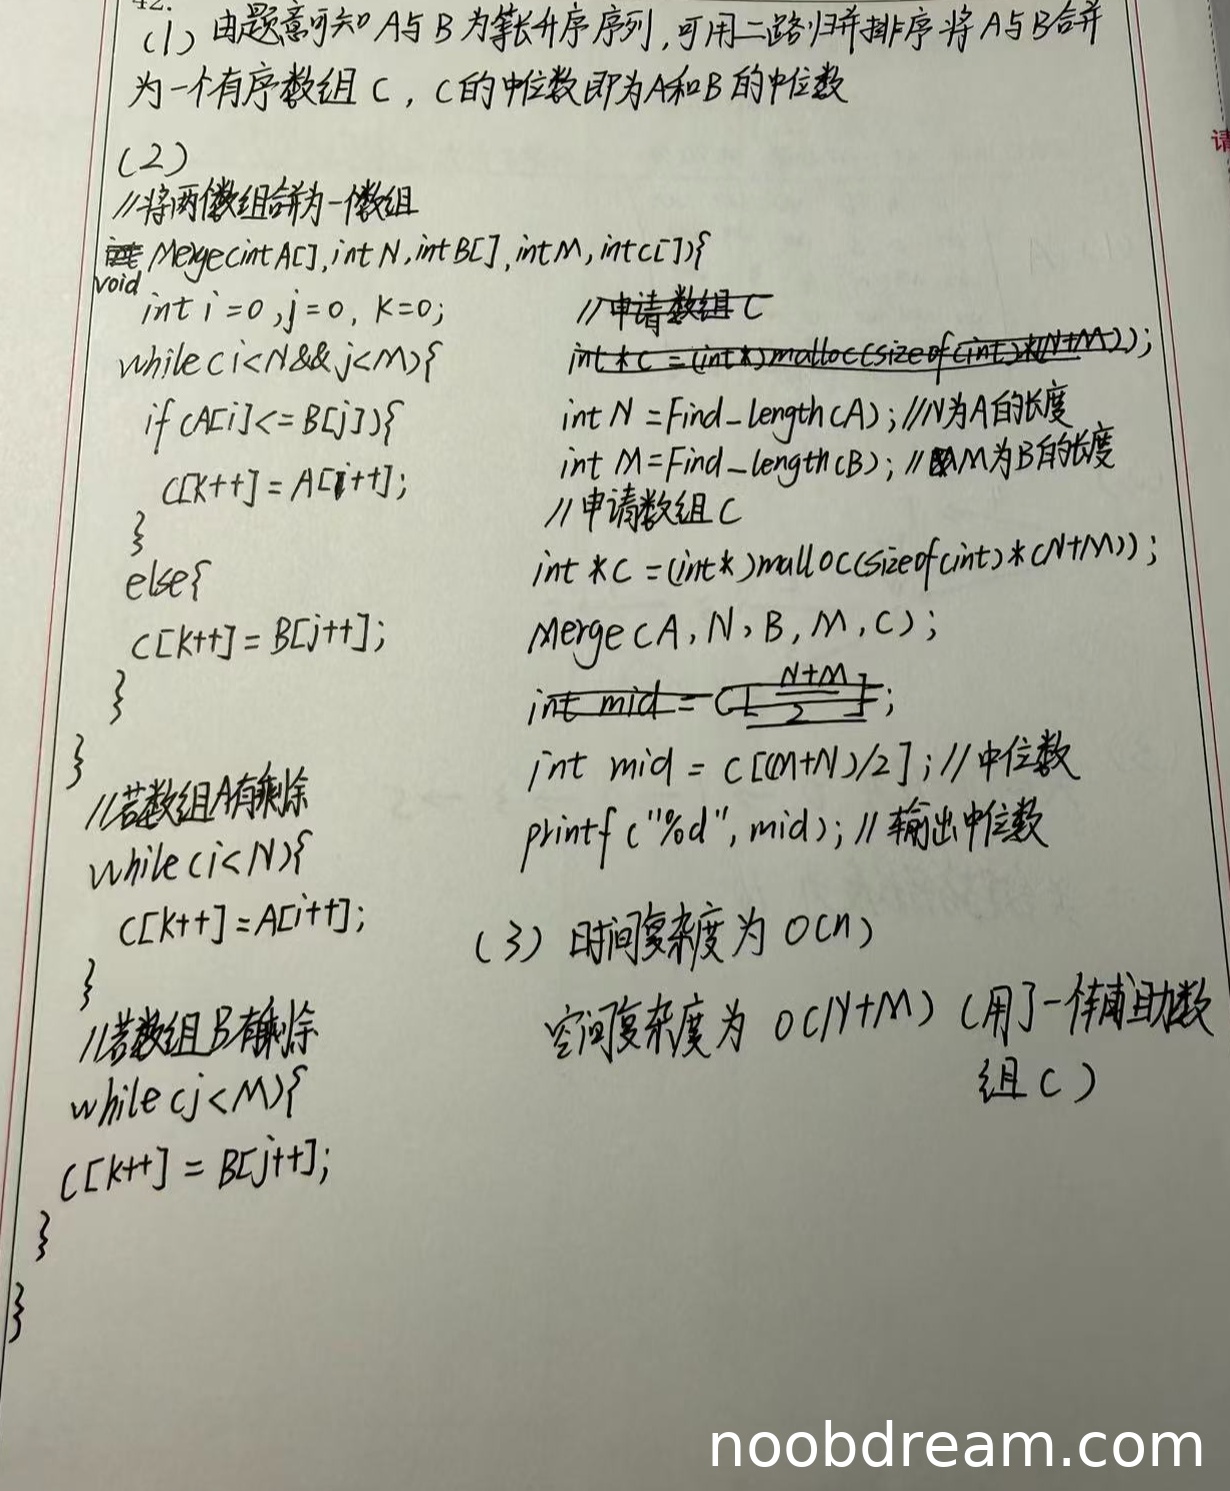 42.
(1) 由题意可知 A与B为等长升序序列,可用二路归并排序将A与B合并
为一个有序数组C,C的中位数即为A和B的中位数
(2)
//将两个数组合并为一个数组
void Merge(int A[],int N,int B[],int M,int C[]){
int i=0,j=0,k=0;
while(i<N&&j<M){
if(A[i]<=B[j]){
C[k++]=A[i++];
}
else{
C[k++]=B[j++];
}
}
//若数组A有剩余
while(i<N){
C[k++]=A[i++];
}
//若数组B有剩余
while(j<M){
C[k++]=B[j++];
}
}
//申请数组C
int*C=(int*)malloc(sizeof(int)*(N+M));
int N=Find_length(A);//N为A的长度
int M=Find_length(B);//M为B的长度
//申请数组C
int *C=(int*)malloc(sizeof(int)*(N+M));
Merge(A,N,B,M,C);
int mid=C[N+M/2];
int mid=C[(M+N)/2];//中位数
printf("%d",mid);//输出中位数
(3)时间复杂度为O(n)
空间复杂度为O(N+M)(用了一个辅助数
组C)
请
noobdream.com